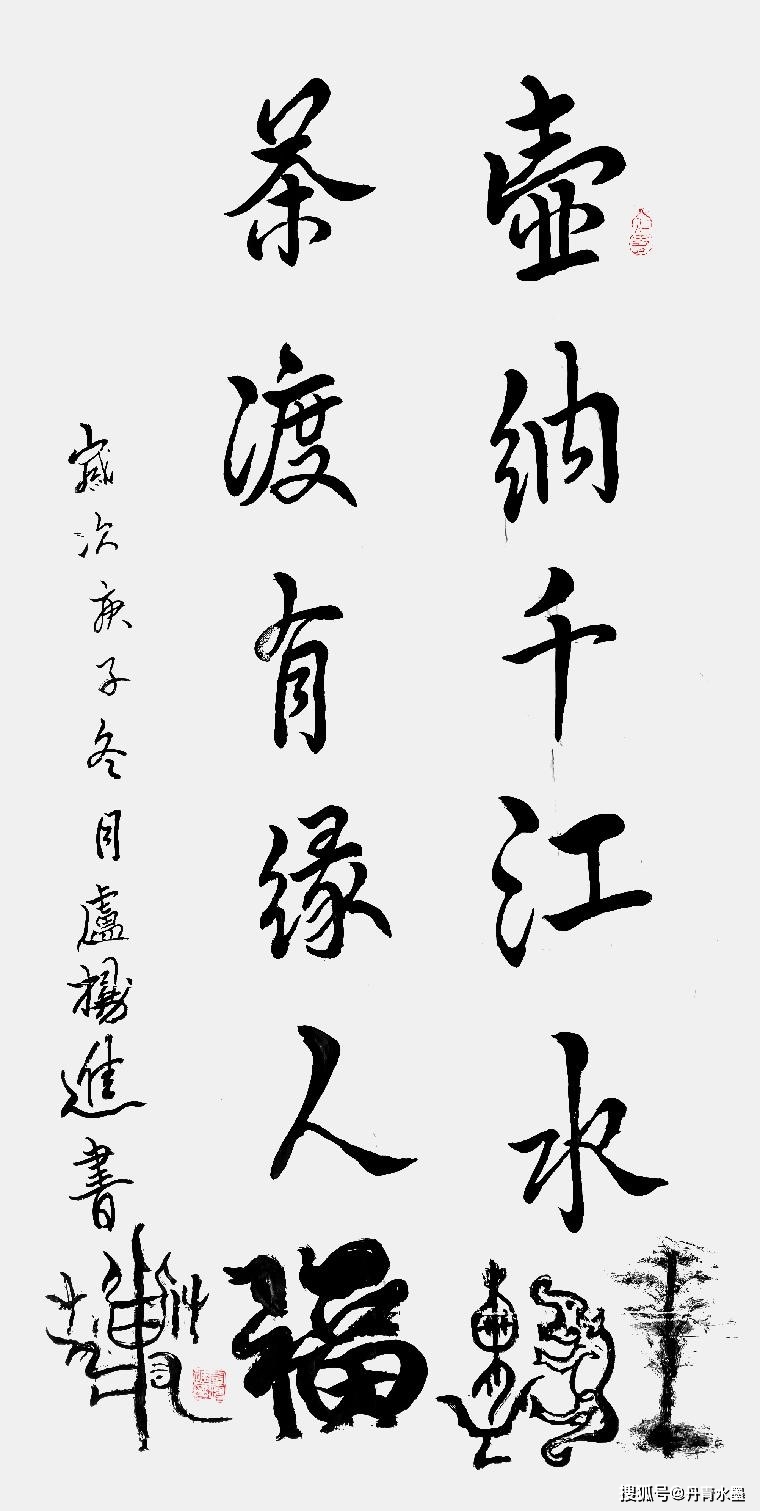 壺納千江水
茶渡有緣人
歲次庚子冬月盧楊進書
福
搜狐号@丹青水墨